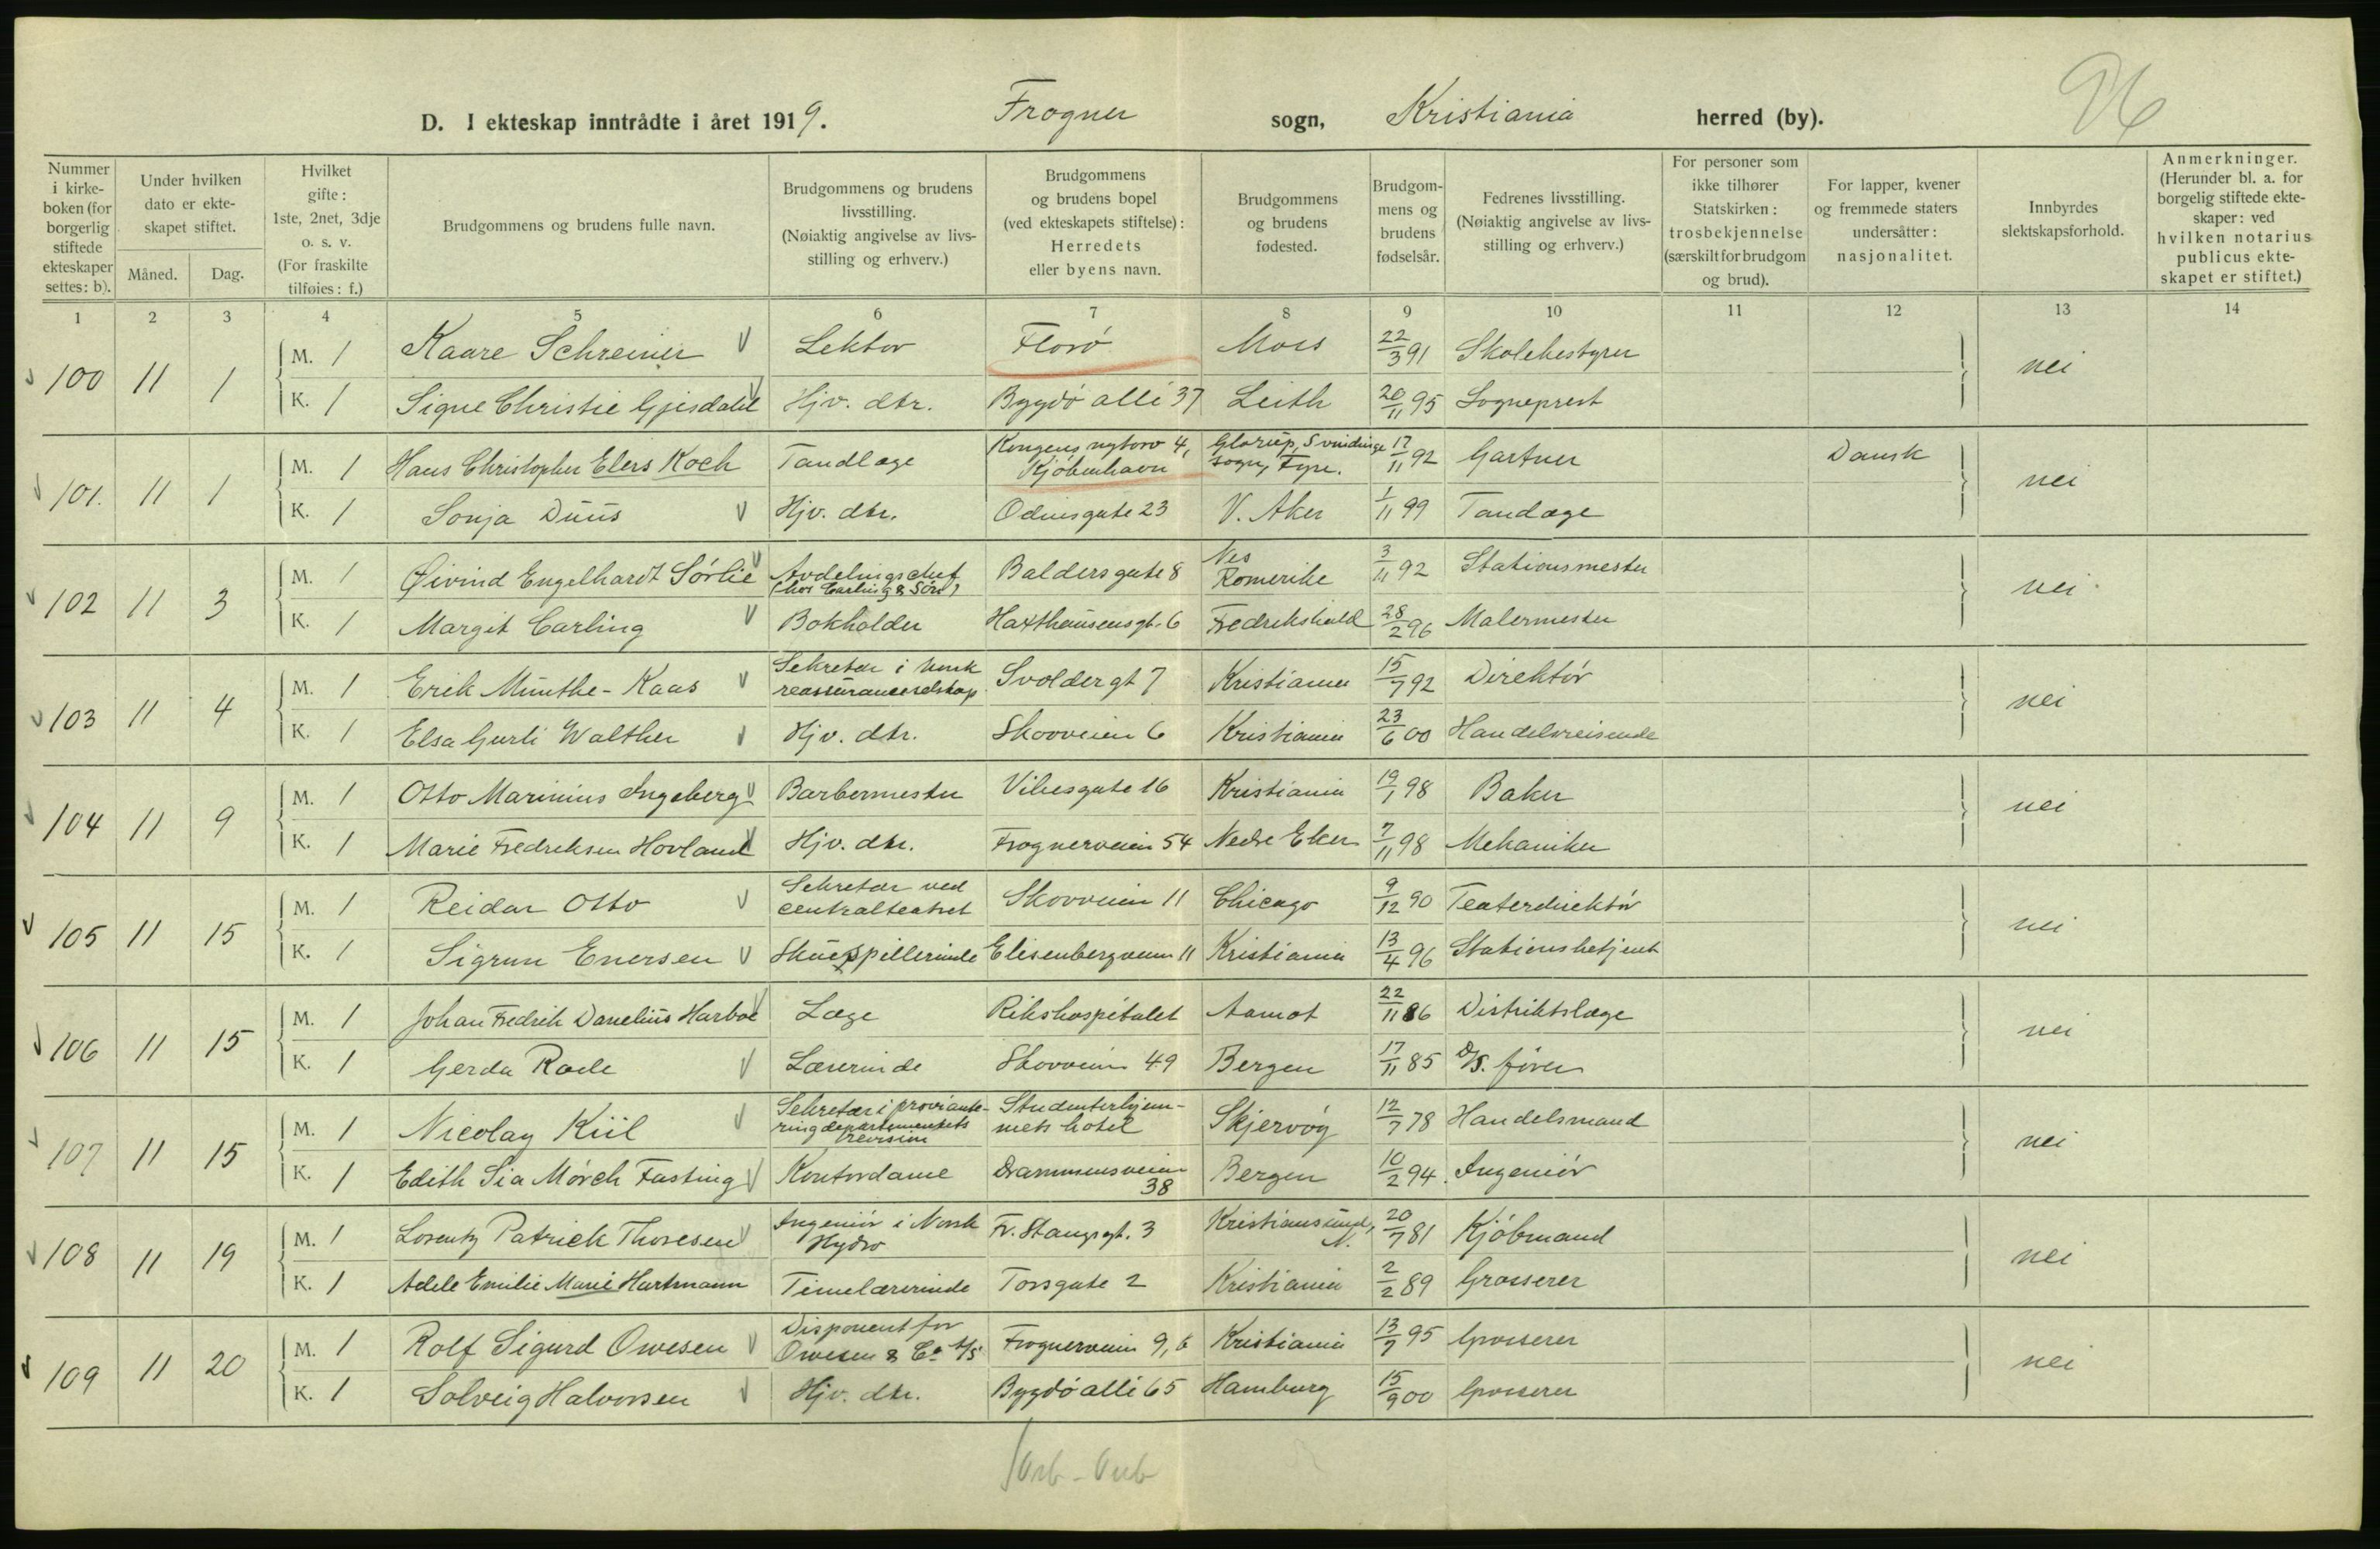 96
D. I ekteskap inntrådte i året 1919. Frogner sogn, Kristiania herred (by).
Nummer i kirke-boken (for borgerlig stiftede ekteskaper settes: b).
Under hvilken dato er ekte-skapet stiftet.
Måned. Dag.
Hvilket gifte: 1ste, 2net, 3dje o. s. v. (For fraskilte tilføies: f.)
Brudgommens og brudens fulle navn.
Brudgommens og brudens livsstilling. (Nøiaktig angivelse av livs-stilling og erhverv.)
Brudgommens og brudens bopel (ved ekteskapets stiftelse): Herredets eller byens navn.
Brudgommens og brudens fødested.
Brudgom-mens og brudens fødselsår.
Fedrenes livsstilling. (Nøiaktig angivelse av livs-stilling og erhverv.)
For personer som ikke tilhører Statskirken: trosbekjennelse (særskilt for brudgom og brud).
For lapper, kvener og fremmede staters undersåtter: nasjonalitet.
Innbyrdes slektskapsforhold.
Anmerkninger. (Herunder bl. a. for borgelig stiftede ekte-skaper: ved hvilken notarius publicus ekte-skapet er stiftet.)
1 2 3 4 5 6 7 8 9 10 11 12 13 14
100 11 1 M. 1 Kaare Schreiner Lektor Florö Moss 22/3 91 Skolebestyrer nei
K. 1 Signe Christie Gjesdahl Hjv. dtr. Bygdö alle 37 Leith 20/11 95 Sogneprest
101. 11 1 M. 1 Hans Christopher Elers Koch Tandlæge Kongens nytorv 4, Kjöbenhavn Glorup, Svindinge sogn, Fyn. 17/11 92 Gartner Dansk nei
K. 1 Sonja Duus Hjv. dtr. Odinsgate 23 V. Aker 1/11 99 Tandlæge
102 11 3 M. 1 Øivind Engelhardt Sörlie Avdelingschef (hos Carling & Sön) Baldersgate 8 Nes Romerike 3/11 92 Stationsmester nei
K. 1 Margit Carling Bokholder Haxthausensgt. 6 Fredrikshald 28/2 96 Malermester
103 11 4 M. 1 Erik Munthe-Kaas Sekretær i norsk reassuranceselskap Svoldergt 7 Kristiania 15/7 92 Direktör nei
K. 1 Elsa Gurli Walther Hjv. dtr. Skovveien 6 Kristiania 23/6 00 Handelsreisende
104 11 9 M. 1 Otto Marinius Ingeberg Barbermester Vibesgate 16 Kristiania 19/1 98 Baker nei
K. 1 Marie Fredriksen Hovland Hjv. dtr. Frognerveien 54 Nedre Eker 7/11 98 Mekaniker
105 11 15 M. 1 Reidar Otto Sekretær ved centralteatret Skovveien 11 Chicago 9/12 90 Teaterdirektör nei
K. 1 Sigrun Enersen Skuespillerinde Elisenbergveien 11 Kristiania 13/4 96 Stationsbetjent
106 11 15 M. 1 Johan Fredrik Danelius Harboe Læge Rikshospitalet Aamot 22/11 86 Distriktslæge nei
K. 1 Gerda Rode Lærerinde Skovveien 49 Bergen 17/11 85 D/S. förer
107 11 15 M. 1 Nicolay Kiil Sekretær i proviante-ringsdepartementets revision Studenterhjem-mets hotel Skjervöy 12/7 78 Handelsmand nei
K. 1 Edith Sia Mörch Fasting Kontordame Drammensveien 38 Bergen 10/2 94. Ingeniör
108 11 19 M. 1 Lorentz Patrick Thoresen Ingeniör i Norsk Hydro Fr. Stangsgt. 3 Kristiansund, N. 20/7 81 Kjöbmand nei
K. 1 Adele Emilie Marie Hartmann Timelærerinde Torsgate 2 Kristiania 2/2 89 Grosserer
109 11 20 M. 1 Rolf Sigurd Owesen Disponent for Owesen & Co A/S Frognerveien 9, b Kristiania 13/7 95 Grosserer nei
K. 1 Solveig Halvorsen Hjv. dtr. Bygdö alle 65 Hamburg 15/9 00 Grosserer